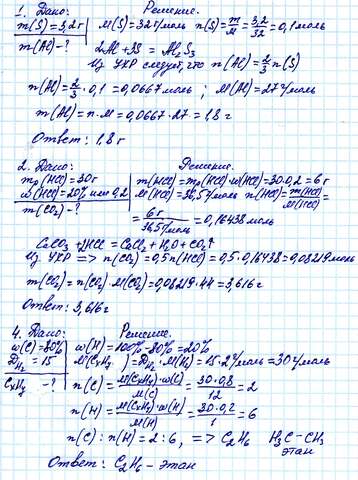 1. Дано: Решение.
m(S)=3,2г M(S)=32г/моль n(S)=m/M=3,2/32=0,1моль
m(Al)-? 2Al+3S=Al₂S₃
Из УХР следует, что n(Al)=2/3 n(S)
n(Al)=2/3·0,1=0,0667моль; M(Al)=27г/моль
m(Al)=n·M=0,0667·27=1,8г
Ответ: 1,8г
2. Дано: Решение.
mр(HCl)=30г m(HCl)=mр(HCl)·w(HCl)=30·0,2=6г
w(HCl)=20% или 0,2 M(HCl)=36,5г/моль n(HCl)=m(HCl)/M(HCl)=
m(CO₂)-? =6г/36,5г/моль=0,16438моль
CaCO₃+2HCl=CaCl₂+H₂O+CO₂↑
Из УХР => n(CO₂)=0,5n(HCl)=0,5·0,16438=0,08219моль
m(CO₂)=n(CO₂)·M(CO₂)=0,08219·44=3,616г
Ответ: 3,616г
4. Дано: Решение.
w(C)=80% w(H)=100%-80%=20%
D_H₂=15 M(CxHy)=D_H₂·M(H₂)=15·2г/моль=30г/моль
CxHy-? n(C)=M(CxHy)·w(C)/M(C)=30·0,8/12=2
n(H)=M(CxHy)·w(H)/M(H)=30·0,2/1=6
n(C):n(H)=2:6, => C₂H₆ H₃C-CH₃
этан
Ответ: C₂H₆-этан